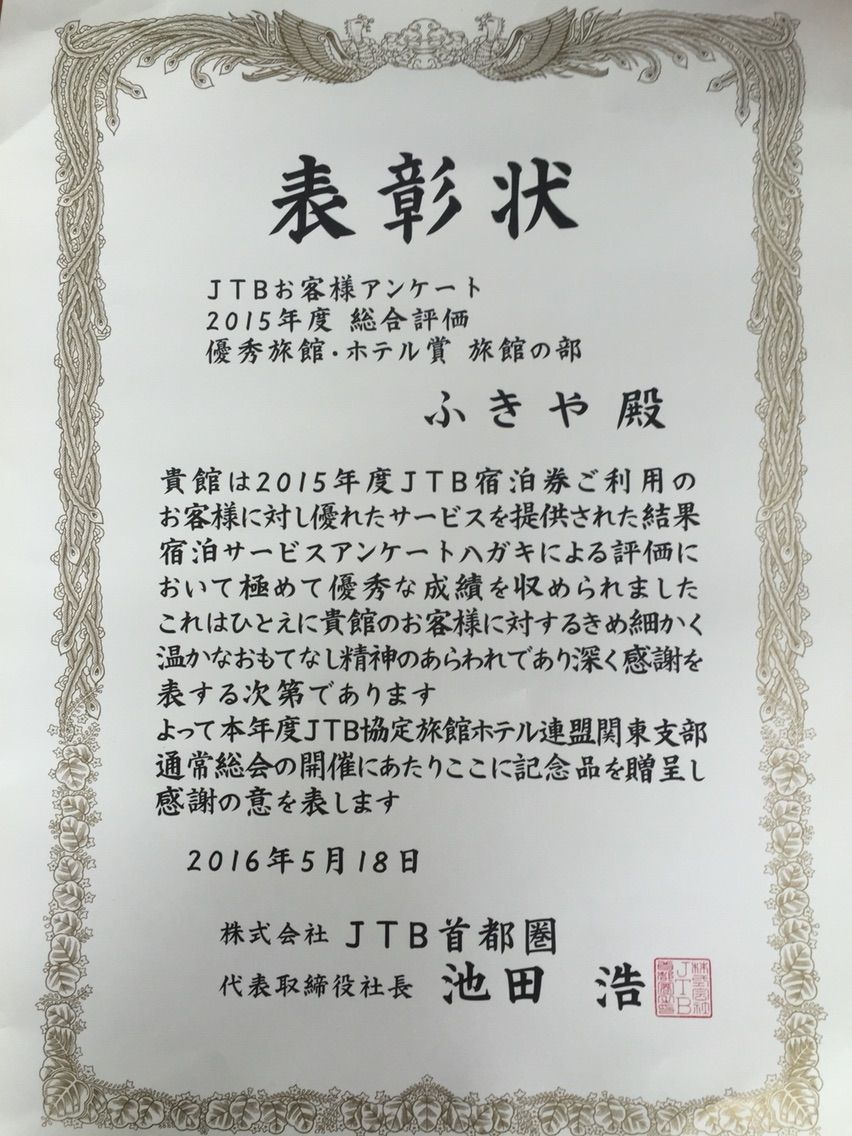 表彰状
JTBお客様アンケート
2015年度 総合評価
優秀旅館・ホテル賞 旅館の部
ふきや殿
貴館は2015年度JTB宿泊券ご利用の
お客様に対し優れたサービスを提供された結果
宿泊サービスアンケートハガキによる評価に
おいて極めて優秀な成績を収められました
これはひとえに貴館のお客様に対するきめ細かく
温かなおもてなし精神のあらわれであり深く感謝を
表する次第であります
よって本年度JTB協定旅館ホテル連盟関東支部
通常総会の開催にあたりここに記念品を贈呈し
感謝の意を表します
2016年5月18日
株式会社 JTB首都圏
代表取締役社長 池田 浩
JTB